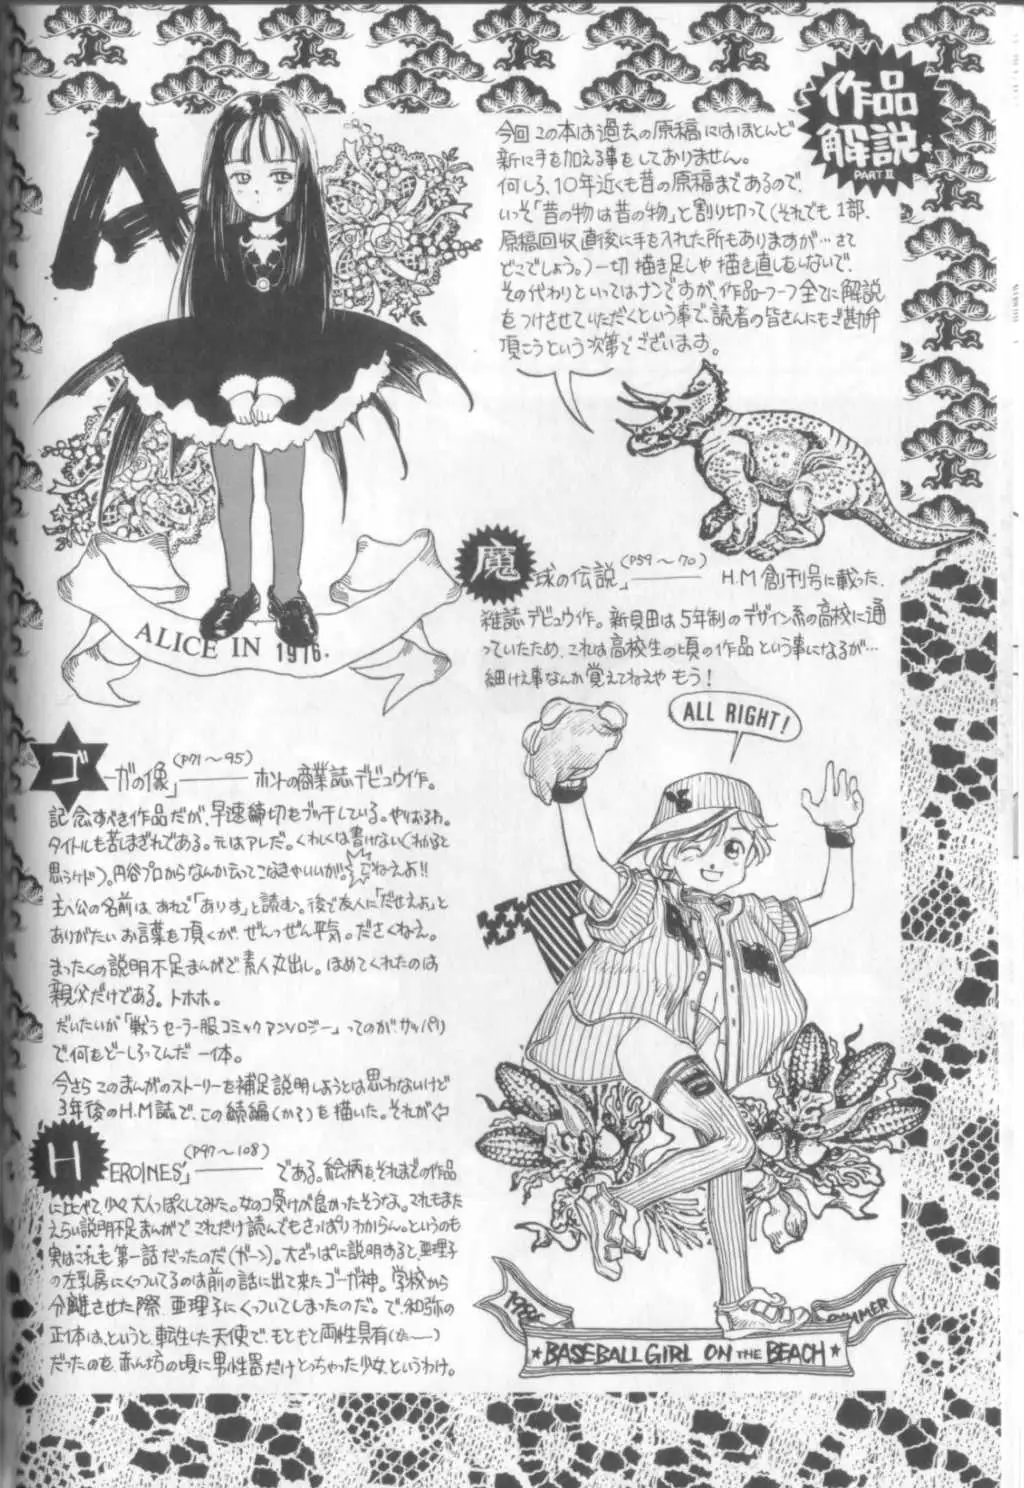 作品
解説
PART II
今回この本は過去の原稿にはほとんど
新に手を加える事をしておりません。
何しろ、10年近くも昔の原稿まであるので、
いっそ「昔の物は昔の物」と割り切って(それでも1部、
原稿回収直後に手を入れた所もありますが…さて
どこでしょう。)一切描き足しや描き直しをしないで、
その代わりといってはナンですが、作品一つ一つ全てに解説
をつけさせていただくという事で、読者の皆さんにもご勘弁
頂こうという次第でございます。
A
ALICE IN 1976.
魔球の伝説」(P59〜70)――H.M創刊号に載った、
雑誌デビュウ作。新貝田は5年制のデザイン系の高校に通
っていたため、これは高校生の頃の作品という事になるが…
細けえ事なんか覚えてねえや もう！
ALL RIGHT!
1986 SUMMER
★BASEBALL GIRL ON THE BEACH★
ゴーガの像」(P71〜95)――ホントの商業誌デビュウ作。
記念すべき作品だが、早速締切をブッ千している。やりおるわ。
タイトルも苦しまぎれである。元はアレだ。くわしくは書けない(わかると
思うケド)。円谷プロからなんか云ってこなきゃいいが。こねえよ!!
主人公の名前は、あれで「ありす」と読む。後で友人に「だせえよ」と
ありがたいお言葉を頂くが、ぜんっぜん平気。ださくねえ。
まったくの説明不足まんがで、素人丸出し。ほめてくれたのは
親父だけである。トホホ。
だいたいが「戦うセーラー服コミックアンソロジー」ってのがサッパリ
で、何をどーしろってんだ 一体。
今さらこのまんがのストーリーを補足説明しようとは思わないけど
3年後のH.M誌で、この続編(かそう)を描いた。それが
HEROINES」(P97〜108)――である。絵柄をそれまでの作品
に比べて、少々大人っぽくしてみた。女のコ受けが良かったそうな。これもまた
えらい説明不足まんがで これだけ読んでもさっぱりわからん。というのも
実はこれも第一話だったのだ(ガーン)。大ざっぱに説明すると、亜理子
の左乳房にくっついてるのは前の話に出て来たゴーガ神。学校から
分離させた際、亜理子にくっついてしまったのだ。で、和弥の
正体は、というと、転生した天使で、もともと両性具有
だったのを赤ん坊の頃に男性器だけとっちゃった少女、というわけ。